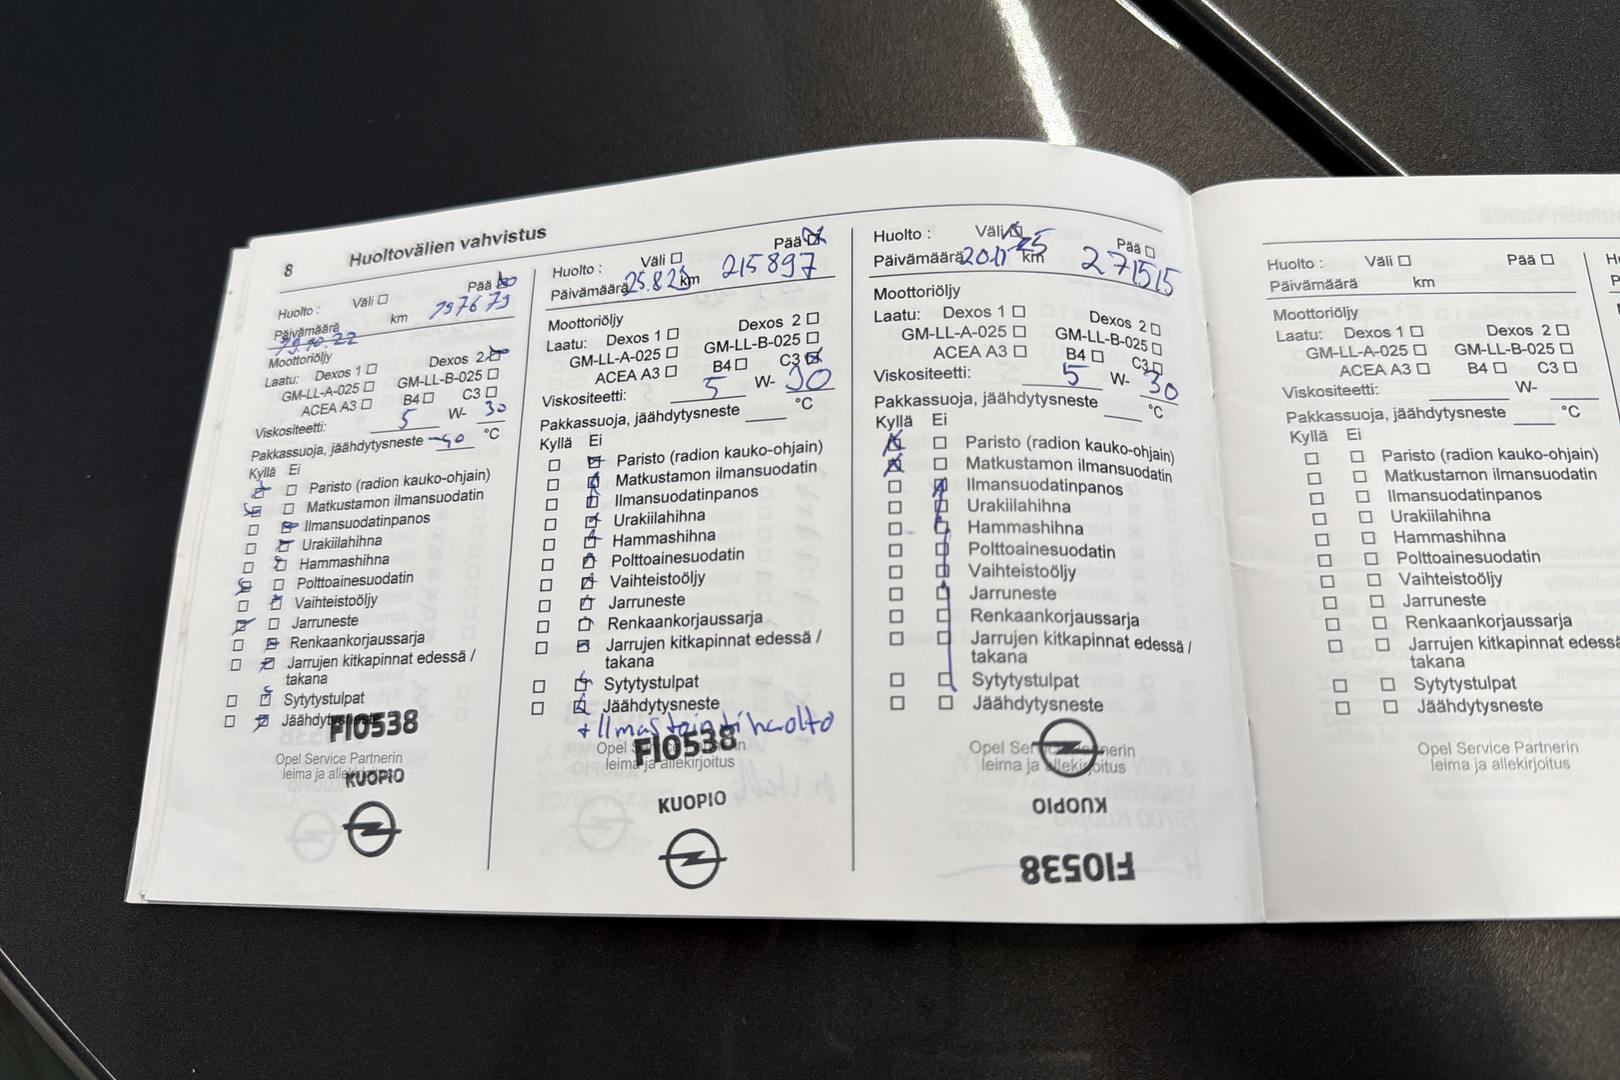 8 Huoltovälien vahvistus
Huolto : Väli Pää
Päivämäärä km 197679
19.10.22
Moottoriöljy
Laatu: Dexos 1 Dexos 2
GM-LL-A-025 GM-LL-B-025
ACEA A3 B4 C3
Viskositeetti: 5 W- 30
Pakkassuoja, jäähdytysneste -40 °C
Kyllä Ei
Paristo (radion kauko-ohjain)
Matkustamon ilmansuodatin
Ilmansuodatinpanos
Urakiilahihna
Hammashihna
Polttoainesuodatin
Vaihteistoöljy
Jarruneste
Renkaankorjaussarja
Jarrujen kitkapinnat edessä /
takana
Sytytystulpat
Jäähdytysneste
FI0538
Opel Service Partnerin
leima ja allekirjoitus
KUOPIO
Huolto : Väli Pää
Päivämäärä 25.8.23 km 215897
Moottoriöljy
Laatu: Dexos 1 Dexos 2
GM-LL-A-025 GM-LL-B-025
ACEA A3 B4 C3
Viskositeetti: 5 W- 30
Pakkassuoja, jäähdytysneste °C
Kyllä Ei
Paristo (radion kauko-ohjain)
Matkustamon ilmansuodatin
Ilmansuodatinpanos
Urakiilahihna
Hammashihna
Polttoainesuodatin
Vaihteistoöljy
Jarruneste
Renkaankorjaussarja
Jarrujen kitkapinnat edessä /
takana
Sytytystulpat
Jäähdytysneste
+ Ilmastointihuolto
FI0538
Opel Service Partnerin
leima ja allekirjoitus
KUOPIO
Huolto : Väli Pää
Päivämäärä 20.11 25 km 271515
Moottoriöljy
Laatu: Dexos 1 Dexos 2
GM-LL-A-025 GM-LL-B-025
ACEA A3 B4 C3
Viskositeetti: 5 W- 30
Pakkassuoja, jäähdytysneste °C
Kyllä Ei
Paristo (radion kauko-ohjain)
Matkustamon ilmansuodatin
Ilmansuodatinpanos
Urakiilahihna
Hammashihna
Polttoainesuodatin
Vaihteistoöljy
Jarruneste
Renkaankorjaussarja
Jarrujen kitkapinnat edessä /
takana
Sytytystulpat
Jäähdytysneste
Opel Service Partnerin
leima ja allekirjoitus
KUOPIO
FI0538
Huolto : Väli Pää
Päivämäärä km
Moottoriöljy
Laatu: Dexos 1 Dexos 2
GM-LL-A-025 GM-LL-B-025
ACEA A3 B4 C3
Viskositeetti: W-
Pakkassuoja, jäähdytysneste °C
Kyllä Ei
Paristo (radion kauko-ohjain)
Matkustamon ilmansuodatin
Ilmansuodatinpanos
Urakiilahihna
Hammashihna
Polttoainesuodatin
Vaihteistoöljy
Jarruneste
Renkaankorjaussarja
Jarrujen kitkapinnat edessä
takana
Sytytystulpat
Jäähdytysneste
Opel Service Partnerin
leima ja allekirjoitus